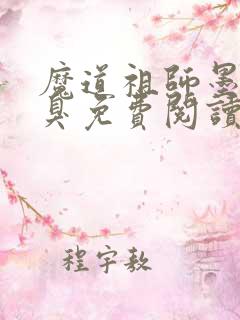 魔道祖師墨
臭免費閱讀
程宇敖